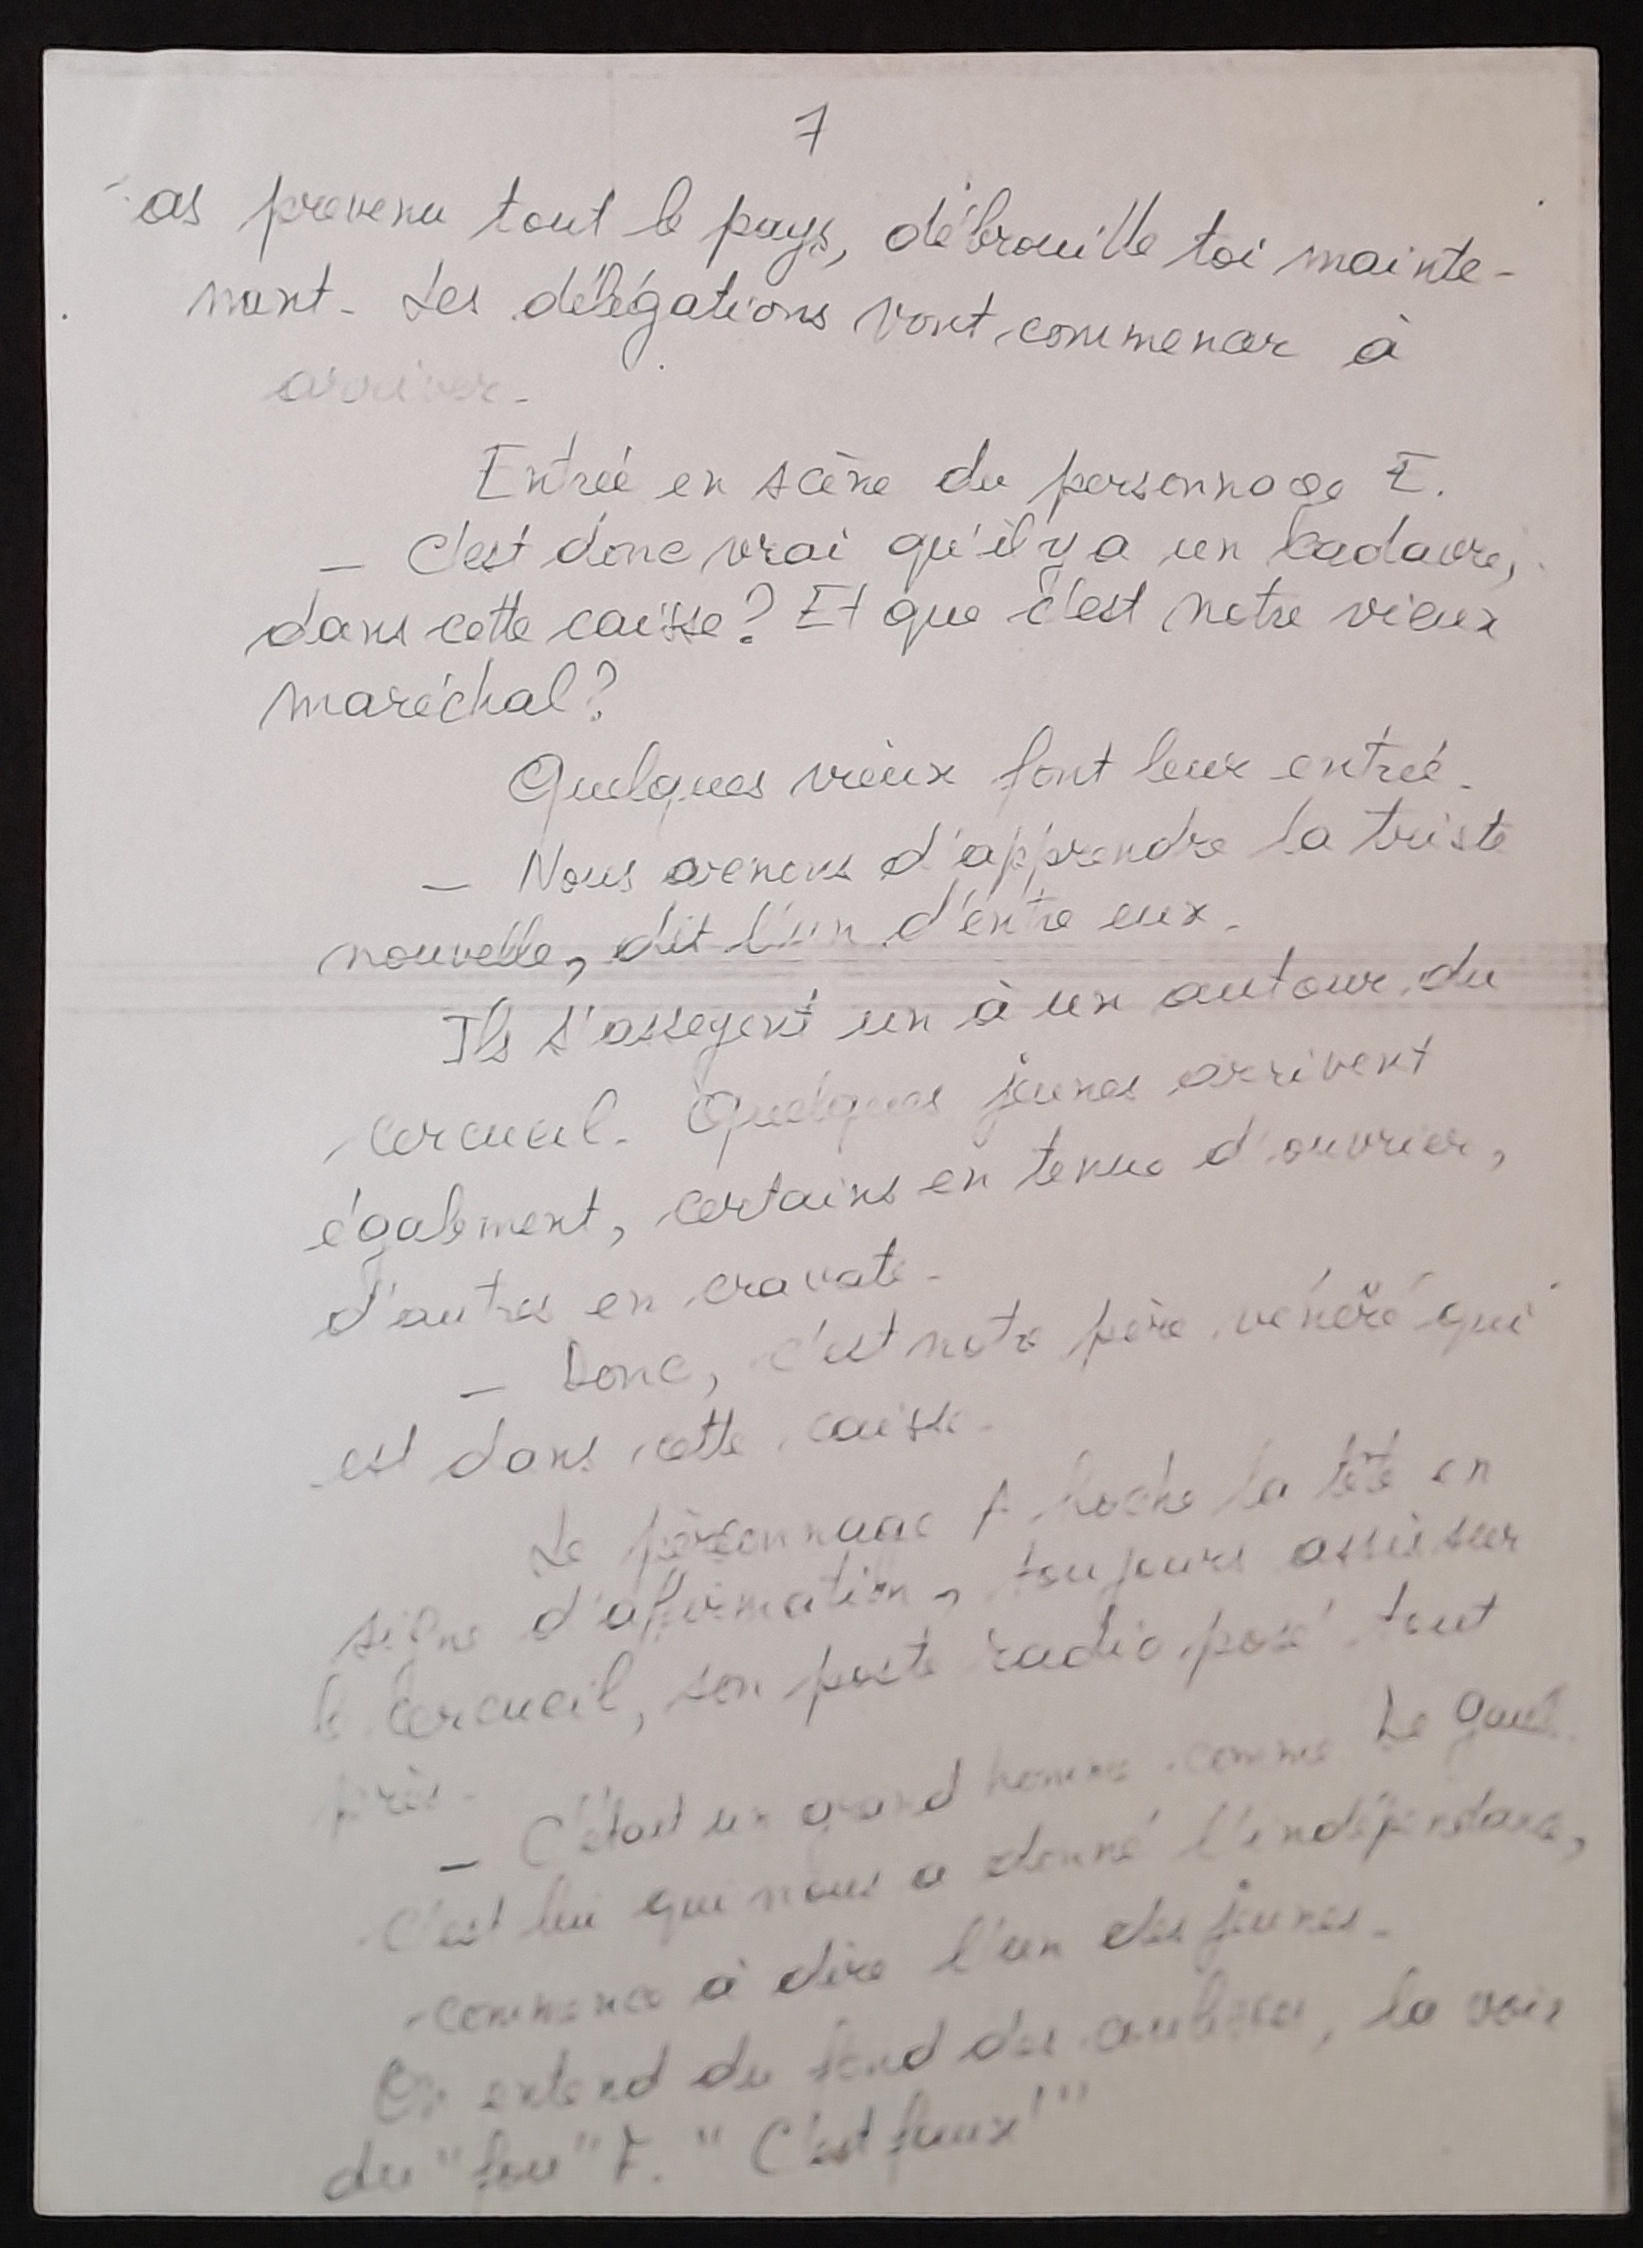 7
as prevenu tout le pays, débrouille toi mainte-
nant. Les délégations vont commencer à
arriver.
Entrée en scène du personnage E.
— C'est donc vrai qu'il y a un cadavre,
dans cette caisse? Et que c'est notre vieux
maréchal?
Quelques vieux font leur entrée.
— Nous venons d'apprendre la triste
nouvelle, dit l'un d'entre eux.
Ils s'asseyent un à un autour du
cercueil. Quelques jeunes arrivent
également, certains en tenue d'ouvrier,
d'autres en cravate.
— Donc, c'est notre père vénéré qui
est dans cette caisse.
Le personnage A hoche la tête en
signe d'affirmation, toujours assis sur
le cercueil, son poste radio posé tout
près.
— C'était un grand homme comme De Gaul
C'est lui qui nous a donné l'indépendance,
commence à dire l'un des jeunes.
On entend du fond des coulisses, la voix
du "fou" F. "C'est faux!"